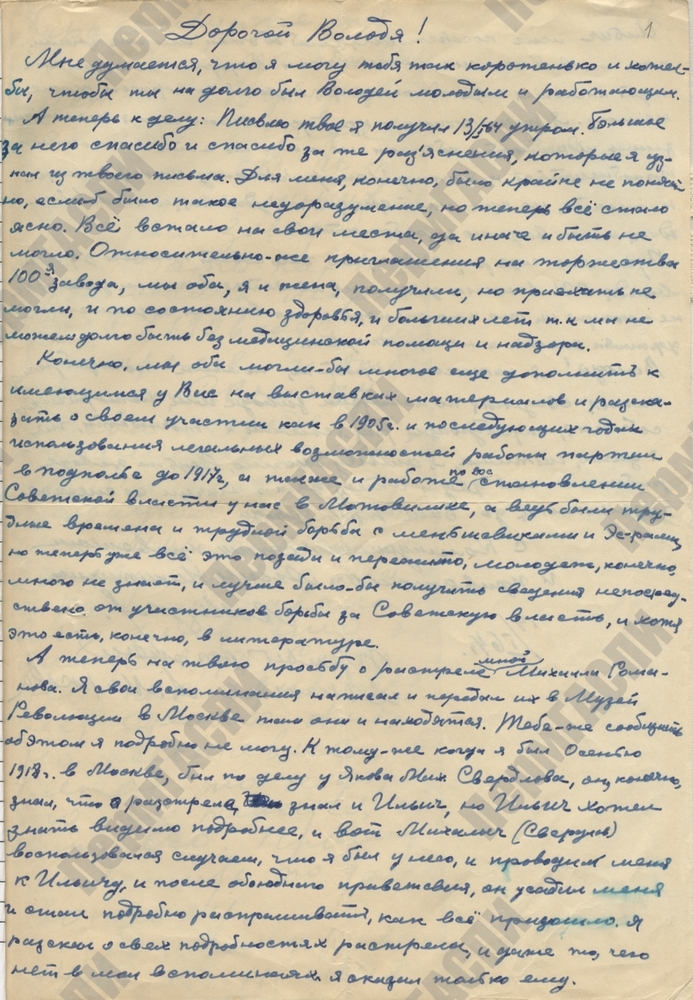 1
Дорогой Володя!
Мне думается, что я могу тебя так коротенько и хотел-
бы, чтобы ты на долго был Володей молодым и работающим.
А теперь к делу: Письмо твое я получил 13/5 64 утром. Большое
за него спасибо и спасибо за те раз'яснения, которые я уз-
нал из твоего письма. Для меня, конечно, было крайне не понят
но, если-б было такое недоразумение, но теперь всё стало
ясно. Всё встало на свои места, да иначе и быть не
могло. Относительно-же приглашения на торжества
100 завода, мы оба, я и жена, получили, но приехать не
могли, и по состоянию здоровья, и больших лет т.к мы не
можем долго быть без медицинской помощи и надзора.
Конечно, мы оба могли-бы многое еще дополнить к
имеющимся у Вас на выставках материалов и расска-
зать о своем участии как в 1905г. и последующих годах
использования легальных возможностей работы партии
в подполье до 1917г, а также и работе по вос становлении
Советской власти у нас в Мотовилихе, а ведь были тру-
дные времена и трудной борьба с меньшевиками и Эс-рами,
но теперь уже всё это позади и пережито, молодежь, конечно,
много не знает, и лучше было-бы получить сведения непосред-
ственно от участников борьбы за Советскую власть, и хотя
это есть, конечно, в литературе.
А теперь на твою просьбу о растреле мной Михаила Рома-
нова. Я свои вспоминания написал и передал их в Музей
Революции в Москве там они и находятся. Тебе-же сообщить
об этом я подробно не могу. К тому-же когда я был Осенью
1918г. в Москве, был по делу у Якова Мих Свердлова, он, конечно,
знал, что о разстреле, знал и Ильич, но Ильич хотел
знать видимо подробнее, и вот Михалыч (Свердлов)
воспользовался случаем, что я был у него, и проводил меня
к Ильичу, и после обоюдного приветствия, он усадил меня
и стал подробно распрашивать, как всё произошло. Я
разсказал о всех подробностях растрела, и даже то, чего
нет в моих вспоминаниях я сказал только ему.
ПермГАСПИ